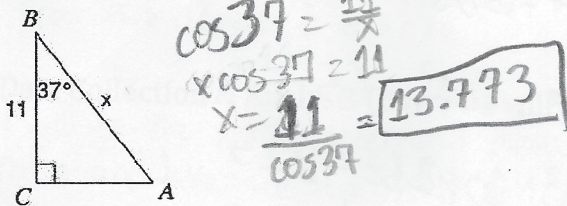 B
37°
11
x
C
A
cos37 = 11/x
xcos37 = 11
x = 11/cos37 = 13.773